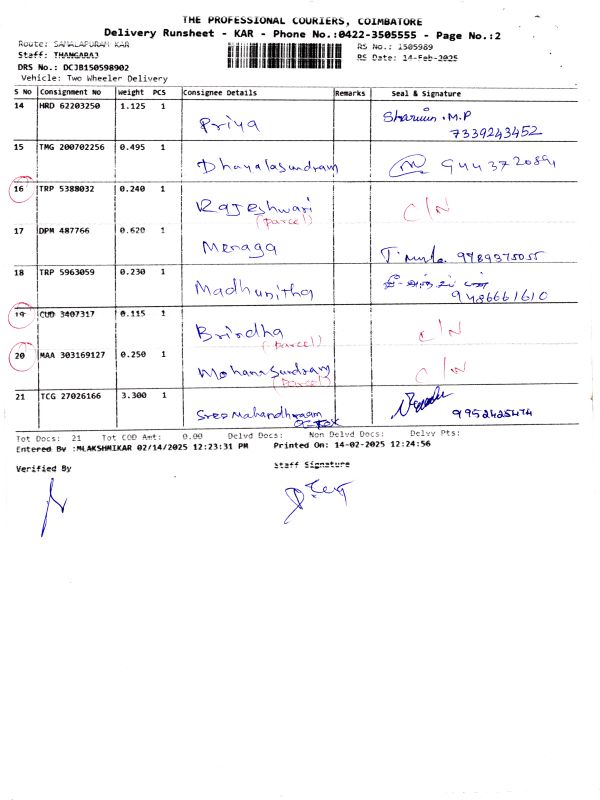 THE PROFESSIONAL COURIERS, COIMBATORE
Delivery Runsheet - KAR - Phone No.:0422-3505555 - Page No.:2
Route: SAMALAPURAM KAR
RS No.: 1505989
Staff: THANGARAJ
RS Date: 14-Feb-2025
DRS No.: DCJB150598902
Vehicle: Two Wheeler Delivery
S No Consignment No Weight PCS Consignee Details Remarks Seal & Signature
14 HRD 62203250 1.125 1 Priya Sharmin .M.P
7339243452
15 TMG 200702256 0.495 1 Dhayalasundram
16 TRP 5388032 0.240 1 Rajeshwari C/N
(parcel)
17 DPM 487766 0.620 1 Menaga 9789375055
18 TRP 5963059 0.230 1 Madhunitha
9486661610
19 CUD 3407317 0.115 1 Brindha C/N
(parcel)
20 MAA 303169127 0.250 1 Mohanasundram C/N
(parcel)
21 TCG 27026166 3.300 1 Sree Mahandhraam
9952425474
Tot Docs: 21 Tot COD Amt: 0.00 Delvd Docs: Non Delvd Docs: Delvy Pts:
Entered By :MLAKSHMIKAR 02/14/2025 12:23:31 PM Printed On: 14-02-2025 12:24:56
Verified By Staff Signature